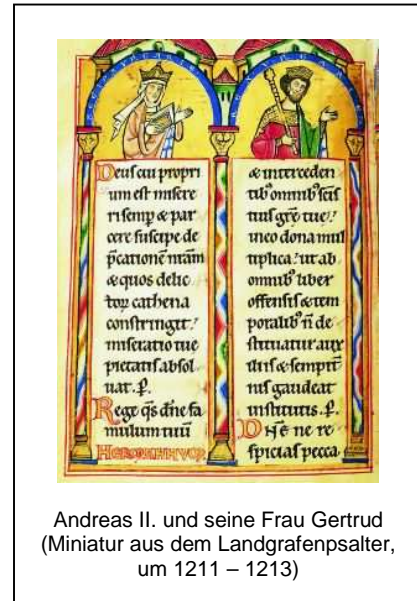 Deus cui propri
um est misere
ri semp̄ & par
cere suscipe de
p̄cationē nr̄am
& quos delic
toꝝ cathena
constringit.
miseratio tue
pietatis absol
uat. P.
Rege qs̄ dn̄e fa
mulum tuū
& interceden
tibꝰ omnibꝰ scīs
tuis grē tue
ineo dona mul
tiplica. ut ab
omnibꝰ liber
offensis & tem
poralibꝰ n̄ de
stituatur aux
iliis & sempit̄
nis gaudeat
institutis. P.
ne re
spicias pecca
Andreas II. und seine Frau Gertrud
(Miniatur aus dem Landgrafenpsalter,
um 1211 – 1213)